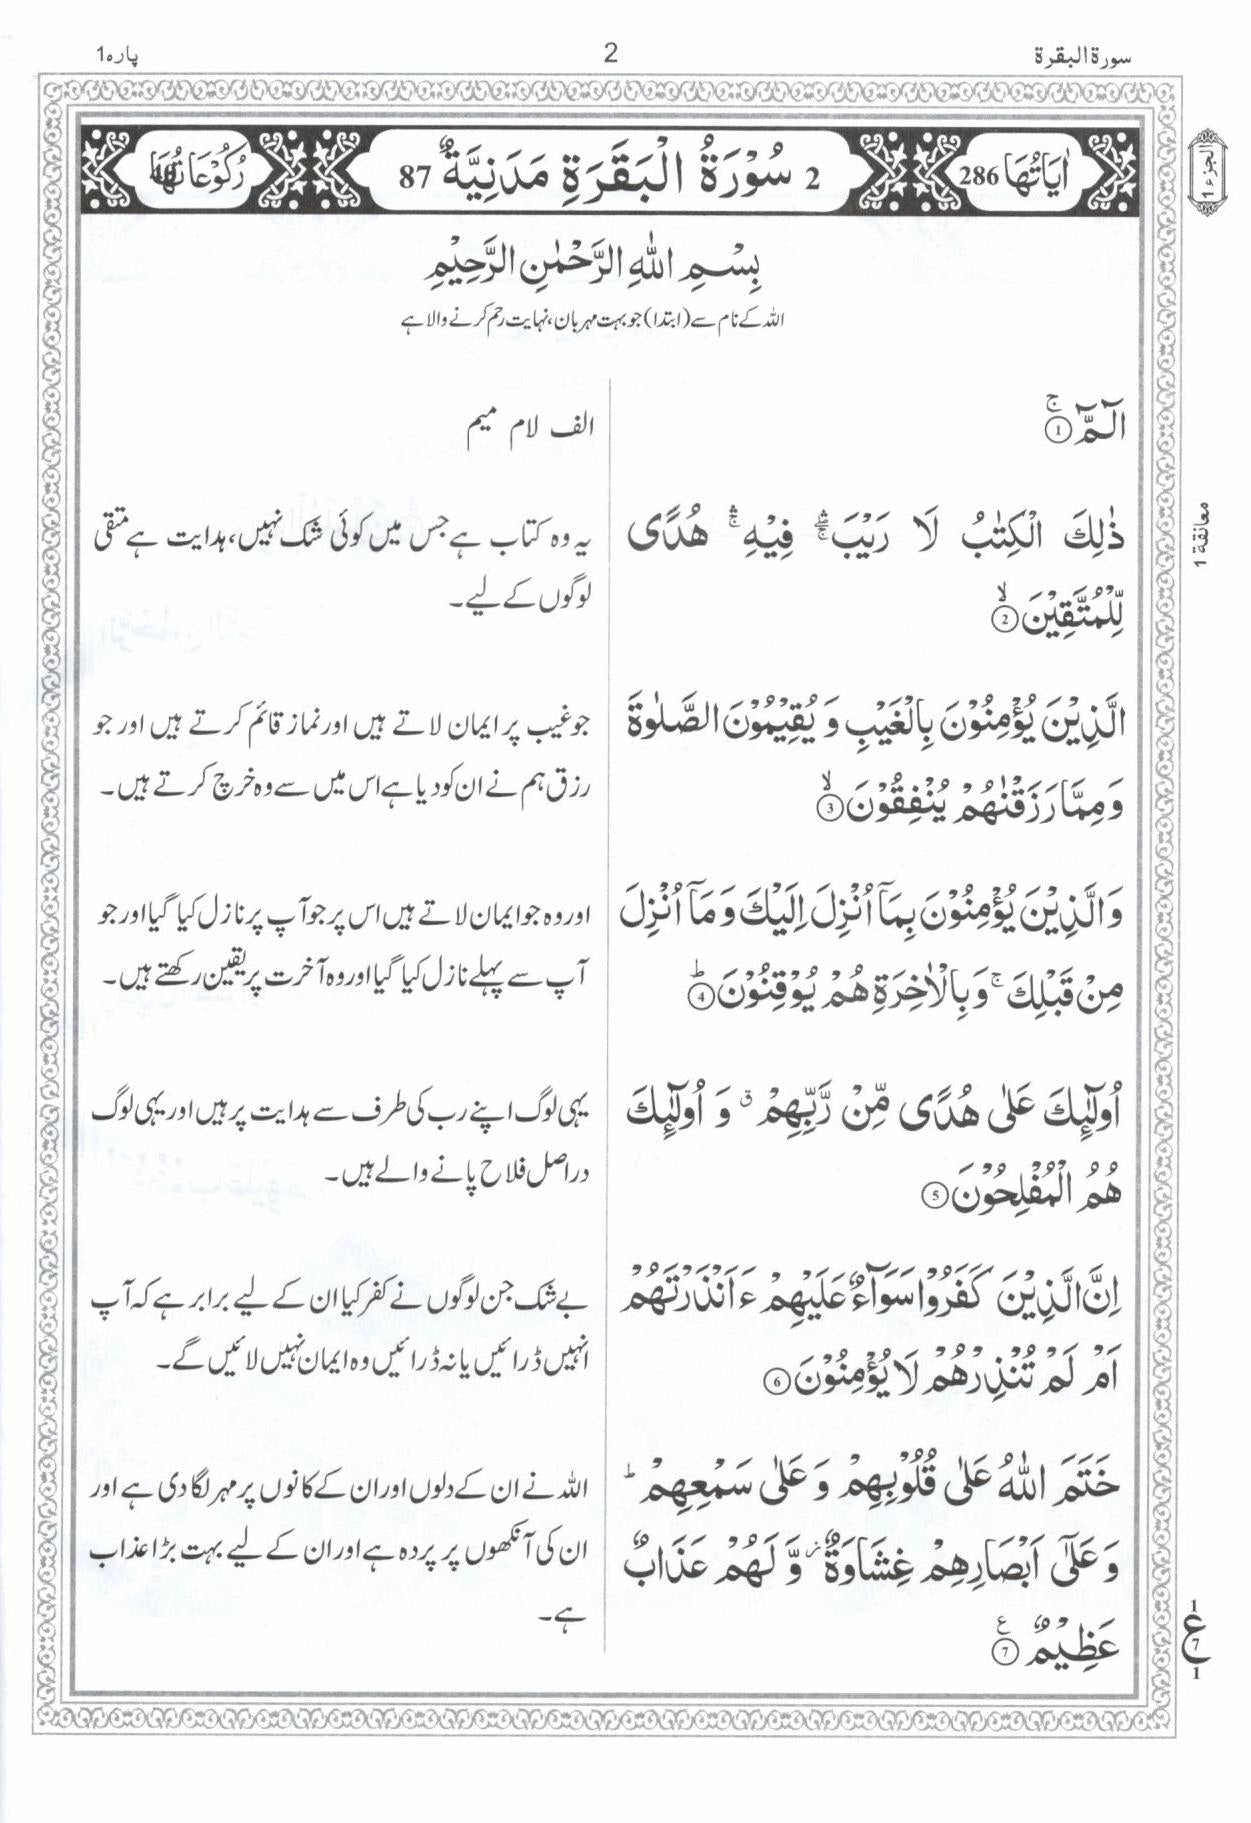 سورۃ البقرۃ 2 پارہ 1
اٰيَاتُهَا 286 2 سُوْرَةُ الْبَقَرَةِ مَدَنِيَّةٌ 87 رُكُوْعَاتُهَا
الجزء ۱
بِسْمِ اللّٰهِ الرَّحْمٰنِ الرَّحِيْمِ
اللہ کے نام سے (ابتدا) جو بہت مہربان، نہایت رحم کرنے والا ہے
الٓمّٓ ۚ 1
الف لام میم
ذٰلِكَ الْكِتٰبُ لَا رَيْبَ ۛۚ فِيْهِ ۛۚ هُدًى
لِّلْمُتَّقِيْنَ ۙ 2
معانقة 1
یہ وہ کتاب ہے جس میں کوئی شک نہیں، ہدایت ہے متقی
لوگوں کے لیے۔
الَّذِيْنَ يُؤْمِنُوْنَ بِالْغَيْبِ وَ يُقِيْمُوْنَ الصَّلٰوةَ
وَ مِمَّا رَزَقْنٰهُمْ يُنْفِقُوْنَ ۙ 3
جو غیب پر ایمان لاتے ہیں اور نماز قائم کرتے ہیں اور جو
رزق ہم نے ان کو دیا ہے اس میں سے وہ خرچ کرتے ہیں۔
وَ الَّذِيْنَ يُؤْمِنُوْنَ بِمَاۤ اُنْزِلَ اِلَيْكَ وَ مَاۤ اُنْزِلَ
مِنْ قَبْلِكَ ۚ وَ بِالْاٰخِرَةِ هُمْ يُوْقِنُوْنَ ؕ 4
اور وہ جو ایمان لاتے ہیں اس پر جو آپ پر نازل کیا گیا اور جو
آپ سے پہلے نازل کیا گیا اور وہ آخرت پر یقین رکھتے ہیں۔
اُولٰٓئِكَ عَلٰى هُدًى مِّنْ رَّبِّهِمْ ۗ وَ اُولٰٓئِكَ
هُمُ الْمُفْلِحُوْنَ 5
یہی لوگ اپنے رب کی طرف سے ہدایت پر ہیں اور یہی لوگ
دراصل فلاح پانے والے ہیں۔
اِنَّ الَّذِيْنَ كَفَرُوْا سَوَآءٌ عَلَيْهِمْ ءَاَنْذَرْتَهُمْ
اَمْ لَمْ تُنْذِرْهُمْ لَا يُؤْمِنُوْنَ 6
بے شک جن لوگوں نے کفر کیا ان کے لیے برابر ہے کہ آپ
انہیں ڈرائیں یا نہ ڈرائیں وہ ایمان نہیں لائیں گے۔
خَتَمَ اللّٰهُ عَلٰى قُلُوْبِهِمْ وَ عَلٰى سَمْعِهِمْ ؕ
وَ عَلٰۤى اَبْصَارِهِمْ غِشَاوَةٌ ؗ وَّ لَهُمْ عَذَابٌ
عَظِيْمٌ ع 7
اللہ نے ان کے دلوں اور ان کے کانوں پر مہر لگا دی ہے اور
ان کی آنکھوں پر پردہ ہے اور ان کے لیے بہت بڑا عذاب
ہے۔
1
ع 7
1